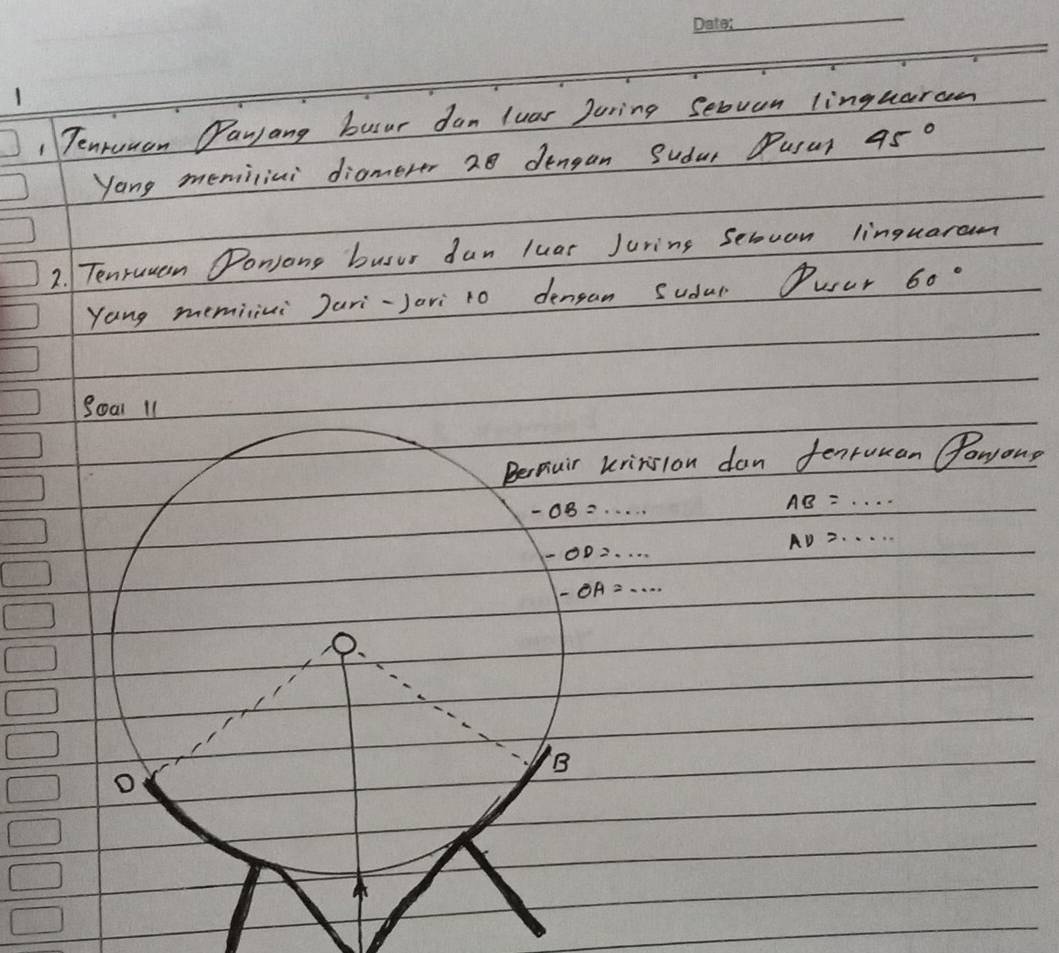 Date:
1
1 Tentukan Panjang busur dan luas Juring Sebuah lingkaran
Yang memiliki diameter 28 dengan Sudut Pusat 45°
2. Tentukan Panjang busur dan luas Juring Sebuah lingkaran
Yang memiliki Jari-Jari 10 dengan Sudut Pusat 60°
Soal 11
Berpikir kritislah dan tentukan Panjang
-OB = ..... AB = ....
-OD = .... AD = .....
-OA = ....
O
D
B
A